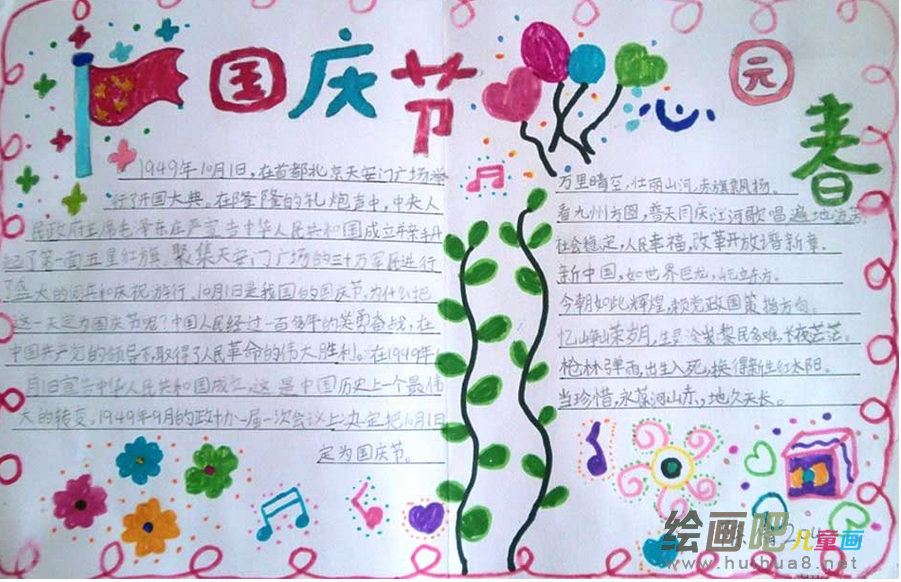 国庆节
1949年10月1日,在首都北京天安门广场举
行了开国大典,在隆隆的礼炮声中,中央人
民政府主席毛泽东庄严宣告中华人民共和国成立并亲手升
起了第一面五星红旗。聚集天安门广场的三十万军民进行
了盛大的阅兵和庆祝游行。10月1日是我国的国庆节,为什么把
这一天定为国庆节呢?中国人民经过一百多年的英勇奋战,在
中国共产党的领导下,取得了人民革命的伟大胜利。在1949年
月1日宣告中华人民共和国成立。这是中国历史上一个最伟
大的转变。1949年9月的政协一届一次会议上决定把10月1日
定为国庆节。
心元春
万里晴空,壮丽山河,赤旗飘扬。
看九州方圆,普天同庆,江河歌唱,遍地
社会稳定,人民幸福,改革开放谱新章。
新中国,如世界巨龙,屹立东方。
今朝如此辉煌,赖党政国策指方向。
忆岁月,黎民多难,长夜茫茫。
枪林弹雨,出生入死,换得新生红太阳。
当珍惜,永葆河山赤,地久天长。
绘画吧儿童画
www.huihua8.net